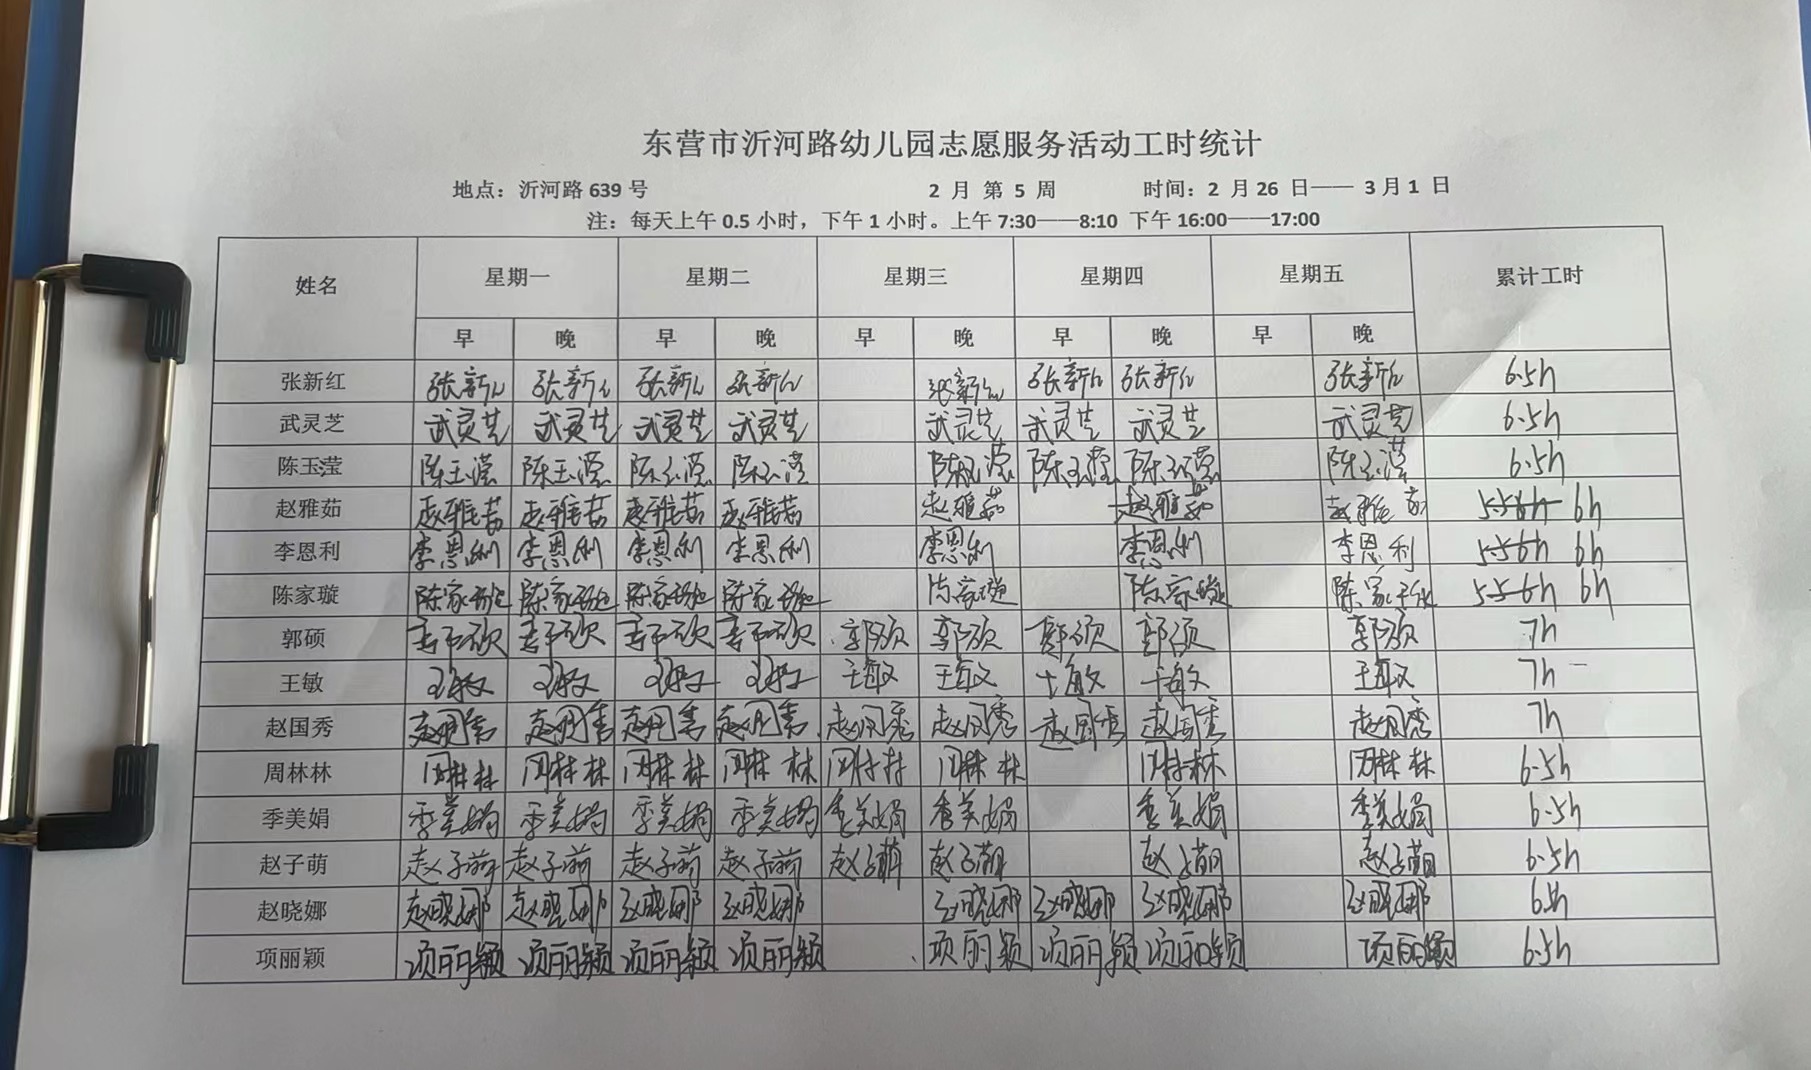 东营市沂河路幼儿园志愿服务活动工时统计
地点：沂河路 639 号 2 月 第 5 周 时间：2 月 26 日—— 3 月 1 日
注：每天上午 0.5 小时，下午 1 小时。上午 7:30——8:10 下午 16:00——17:00
姓名 星期一 星期二 星期三 星期四 星期五 累计工时
早 晚 早 晚 早 晚 早 晚 早 晚
张新红 张新红 张新红 张新红 张新红 张新红 张新红 张新红 张新红 6.5h
武灵芝 武灵芝 武灵芝 武灵芝 武灵芝 武灵芝 武灵芝 武灵芝 武灵芝 6.5h
陈玉莹 陈玉滢 陈玉滢 陈玉滢 陈玉滢 陈玉滢 陈玉滢 陈玉滢 陈玉滢 6.5h
赵雅茹 赵雅茹 赵雅茹 赵雅茹 赵雅茹 赵雅茹 赵雅茹 赵雅茹 6h
李恩利 李恩利 李恩利 李恩利 李恩利 李恩利 李恩利 李恩利 6h
陈家璇 陈家璇 陈家璇 陈家璇 陈家璇 陈家璇 陈家璇 陈家璇 6h
郭硕 郭硕 郭硕 郭硕 郭硕 郭硕 郭硕 郭硕 郭硕 郭硕 7h
王敏 王敏 王敏 王敏 王敏 王敏 王敏 王敏 王敏 王敏 7h
赵国秀 赵国秀 赵国秀 赵国秀 赵国秀 赵国秀 赵国秀 赵国秀 赵国秀 赵国秀 7h
周林林 周林林 周林林 周林林 周林林 周林林 周林林 周林林 周林林 6.5h
季美娟 季美娟 季美娟 季美娟 季美娟 季美娟 季美娟 季美娟 季美娟 6.5h
赵子萌 赵子萌 赵子萌 赵子萌 赵子萌 赵子萌 赵子萌 赵子萌 赵子萌 6.5h
赵晓娜 赵晓娜 赵晓娜 赵晓娜 赵晓娜 赵晓娜 赵晓娜 赵晓娜 赵晓娜
项丽颖 项丽颖 项丽颖 项丽颖 项丽颖 项丽颖 项丽颖 项丽颖 项丽颖 6.5h